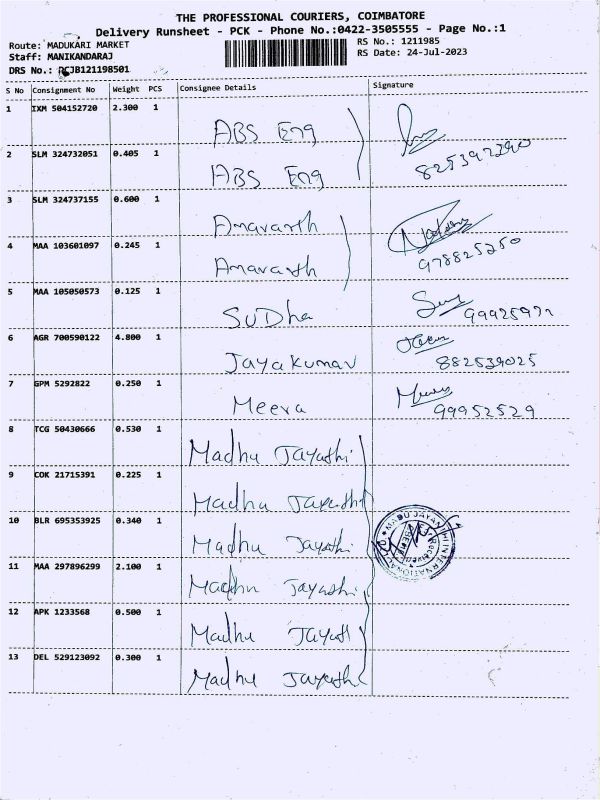 THE PROFESSIONAL COURIERS, COIMBATORE
Delivery Runsheet - PCK - Phone No.:0422-3505555 - Page No.:1
Route: MADUKARI MARKET RS No.: 1211985
Staff: MANIKANDARAJ RS Date: 24-Jul-2023
DRS No.: PCJB121198501
S No Consignment No Weight PCS Consignee Details Signature
1 IXM 504152720 2.300 1 ABS Eng
2 SLM 324732051 0.405 1 ABS Eng 825397390
3 SLM 324737155 0.600 1 Amaravth
4 MAA 103601097 0.245 1 Amaravth 978825250
5 MAA 105050573 0.125 1 SUDha 99925971
6 AGR 700590122 4.800 1 Jayakumar 882539025
7 GPM 5292822 0.250 1 Meera 99952529
8 TCG 50430666 0.530 1 Madhu Jayathi
9 COK 21715391 0.225 1 Madhu Jayathi
10 BLR 695353925 0.340 1 Madhu Jayathi
MADU JAYANTHI INTERNATIONAL
Received
11 MAA 297896299 2.100 1 Madhu Jayathi
12 APK 1233568 0.500 1 Madhu Jayath
13 DEL 529123092 0.300 1 Madhu Jayathi